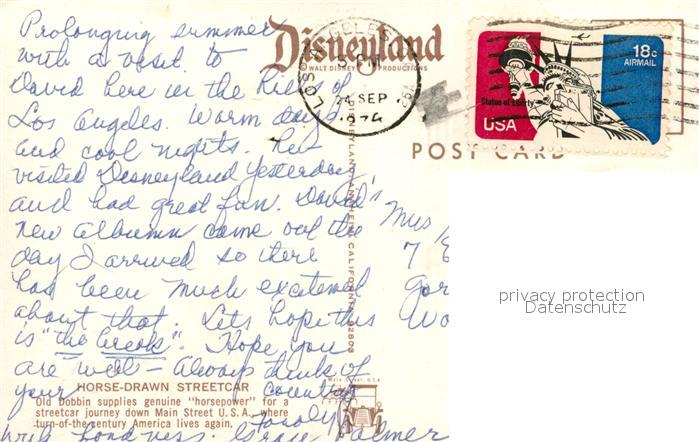 Prolonging summer
with a visit to
David here in the Hills of
Los Angeles. Warm days
and cool nights. We
visited Disneyland yesterday
and had great fun. David's
new album came out the
day I arrived so there
has been much excitement
about that. Lets hope this
is "the break". Hope you
are well - Always think of
your country
family
with fondness. Palmer
Disneyland
© WALT DISNEY PRODUCTIONS
LOS ANGELES, CA
PM
24 SEP
1974
18c
AIRMAIL
Statue of Liberty
USA
POST CARD
7
privacy protection
Datenschutz
HORSE-DRAWN STREETCAR
Old Dobbin supplies genuine "horsepower" for a
streetcar journey down Main Street U.S.A., where
turn-of-the-century America lives again.
Main Street, U.S.A.
DISNEYLAND, ANAHEIM, CALIFORNIA 92802